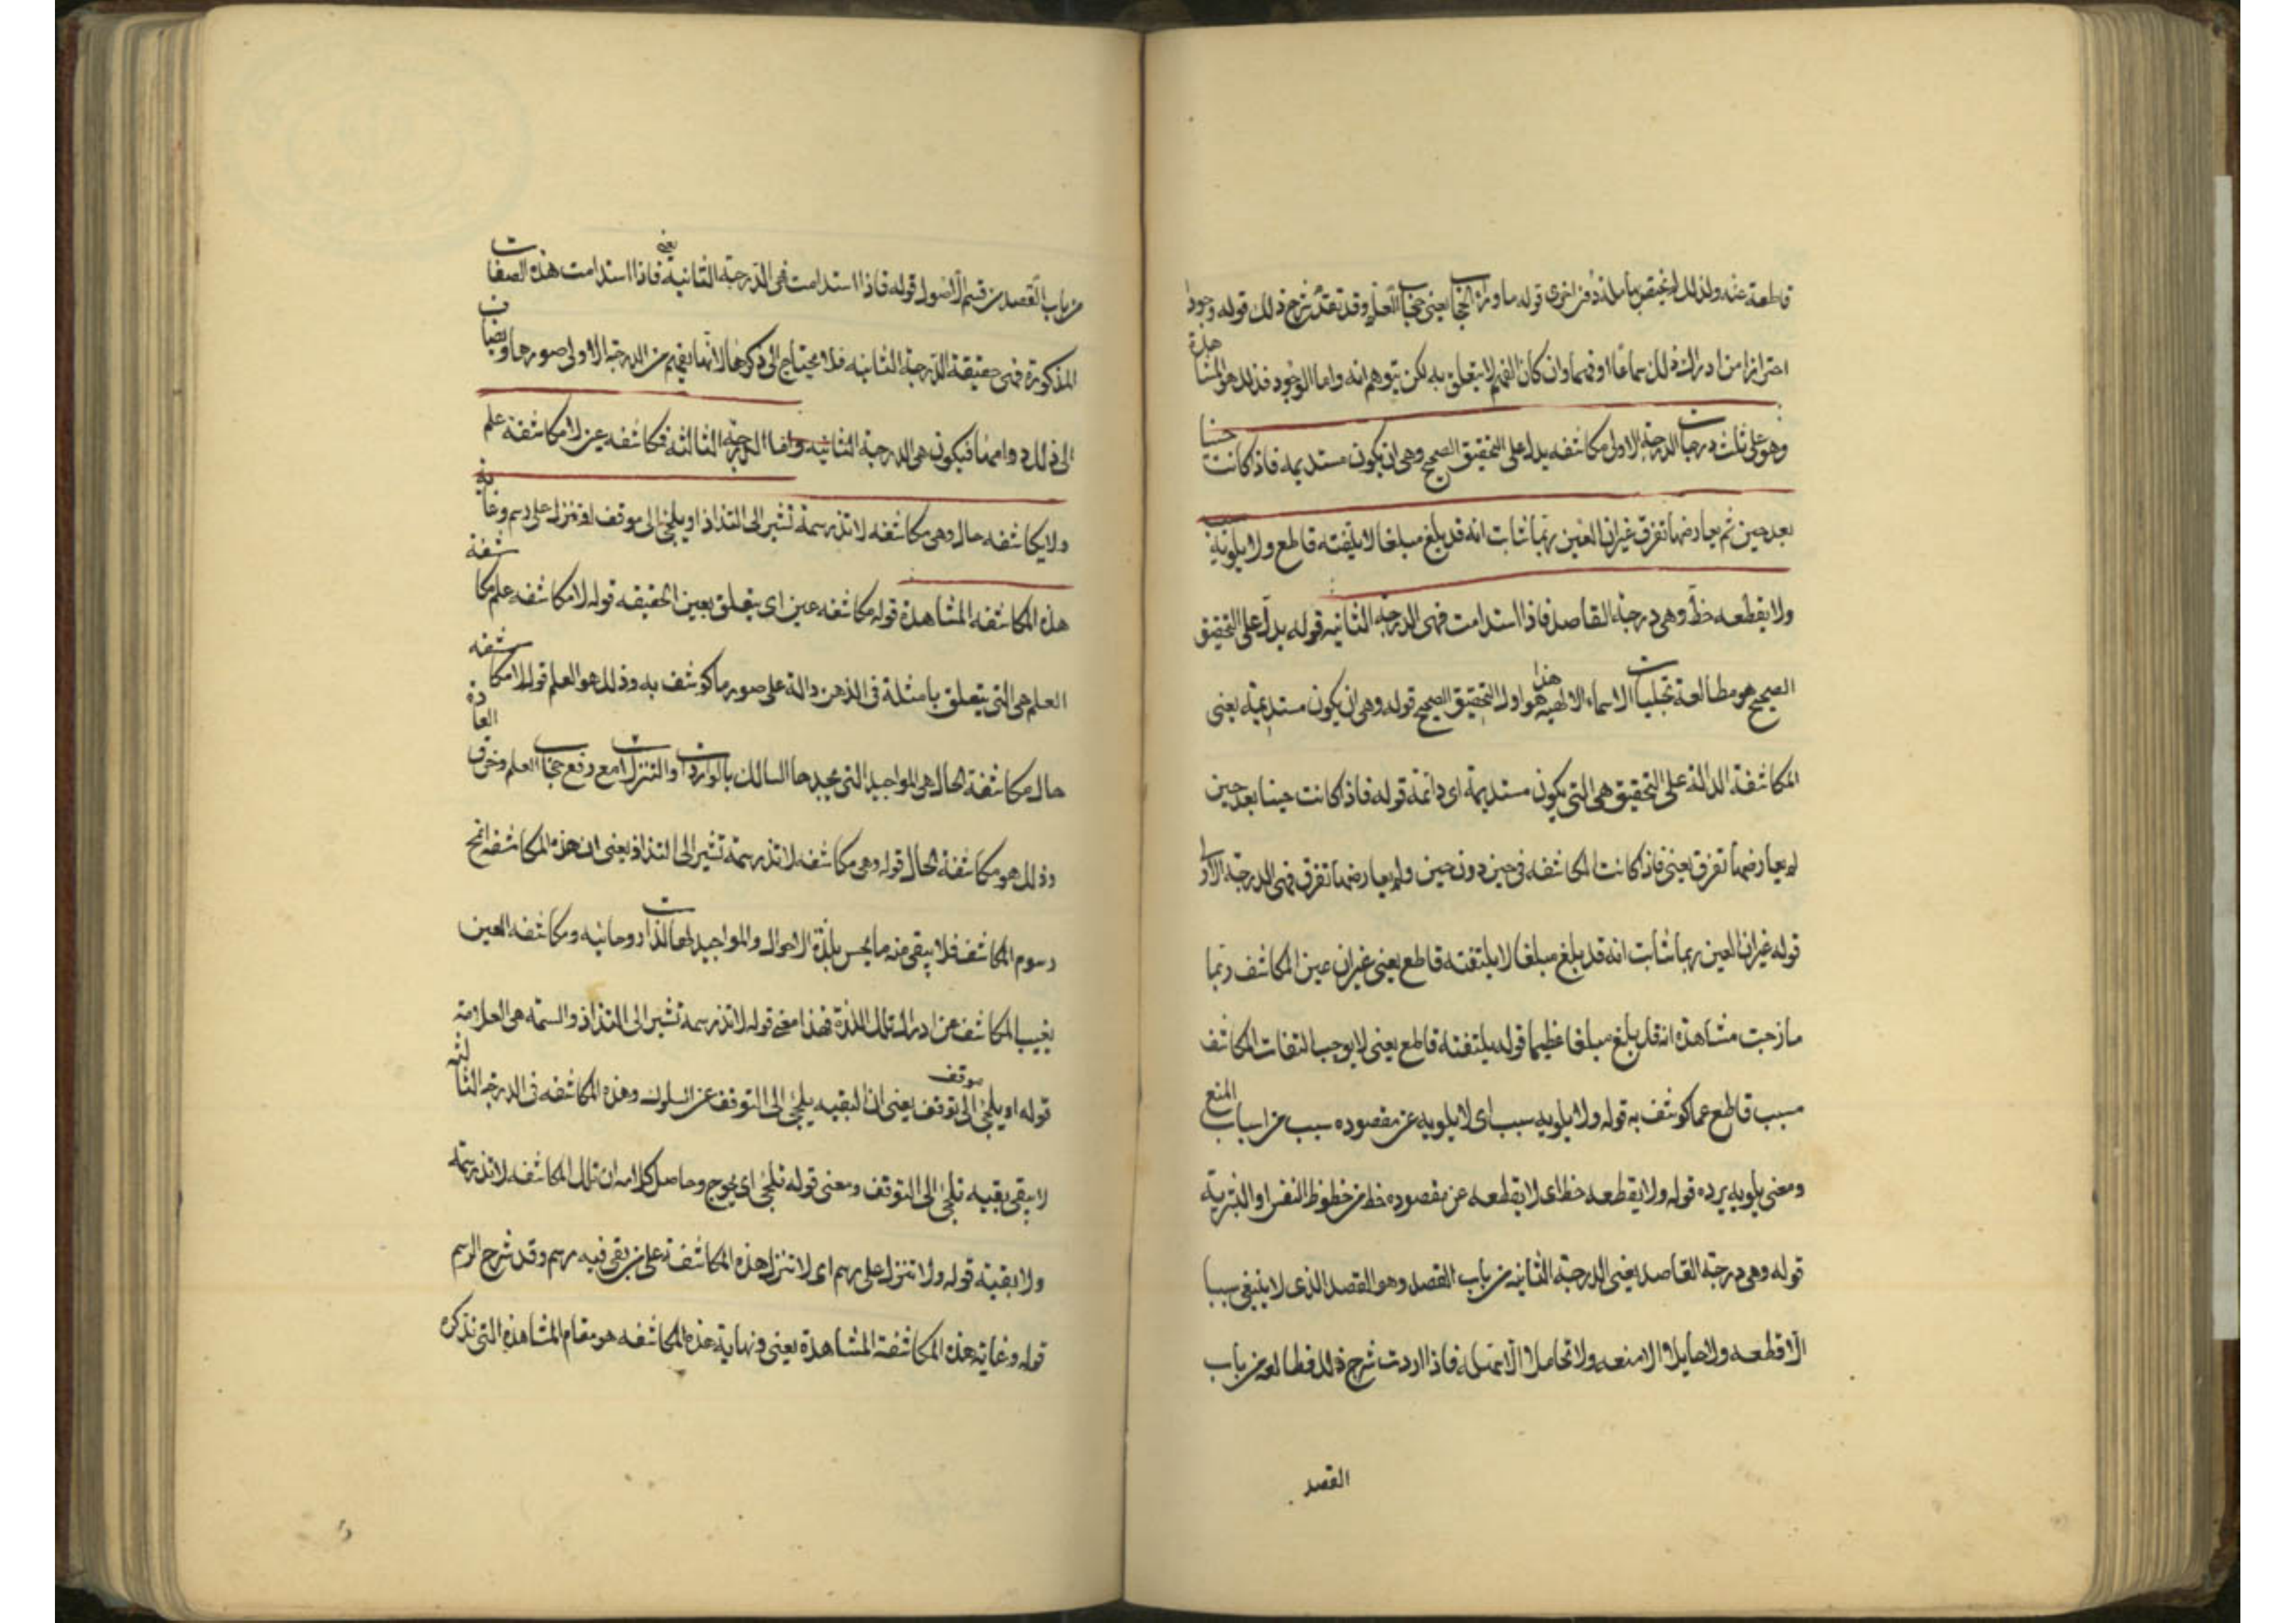 قاطعة عنه ولذلك لم يختص بها متلذذ من اخرى قوله ما وراء الحجاب يعنى حجاب العلم وقد تقدم شرح ذلك قوله وجودا
احترازا من ادراك ذلك سماعا او فهما وان كان الفهم لا يتعلق به لكن يتوهم انه واما الوجود فذلك هو المشاهدة
وهو على ثلث درجات الدرجة الاولى مكاشفه يدل على التحقيق الصحيح وهى ان يكون مستديمه فاذ كانت حينا
بعد حين ثم يعارضها تفرق غير ان العين ربما شابت انه قد بلغ مبلغا لا يلفته قاطع ولا يلويه سبب
ولا يقطعه حظ وهى درجة القاصد فاذا استدامت فهى الدرجة الثانيه قوله يدل على التحقيق
الصحيح هو مطالعة تجليات الاسماء الالهيه هذا هو اول التحقيق الصحيح قوله وهى ان يكون مستديمة يعنى
المكاشفة الدالة على التحقيق هى التى يكون مستديمة اى دائمة قوله فاذ كانت حينا بعد حين
لم يعارضها تفرق يعنى فاذ كانت المكاشفه فى حين دون حين ولم يعارضها تفرق فهى الدرجة الاولى
قوله غير ان العين ربما شابت انه قد بلغ مبلغا لا يلتفته قاطع يعنى غير ان عين المكاشف ربما
مازحبت مشاهدة انه قد بلغ مبلغا عظيما قوله يلتفته قاطع يعنى لا يوجب التفات المكاشف
سبب قاطع عما كوشف به قوله ولا يلويه سبب اى لا يلويه عن مقصوده سبب من اسباب المنع
ومعنى يلويه يرده قوله ولا يقطعه حظ اى لا يقطعه عن مقصوده حظ من حظوظ النفس او البشرية
قوله وهى درجة القاصد يعنى الدرجة الثانيه من باب القصد وهو القصد الذى لا ينبغى سببا
الا قطعه ولا حايلا الا منعه ولا تحاملا الا سهله فاذا اردت شرح ذلك فطالعه من باب
القصد
من باب القصد من قسم الاصول قوله فاذا استدامت فهى الدرجة الثانية يعنى فاذا استدامت هذه الصفات
المذكورة فهى حقيقة الدرجة الثانيه فلا يحتاج الى ذكرها لانها يفهم من الدرجة الاولى صورها ويضاف
الى ذلك دوامها فيكون هى الدرجة الثانيه واما الدرجة الثالثة فمكاشفه عين لا مكاشفة علم
ولا مكاشفه حال وهى مكاشفه لا تذر سمة تشير الى التذاذ او يلجئ الى موقف او تنزل على رسم وغاية
هذه المكاشفه المشاهدة قوله مكاشفه عين اى يتعلق بعين الحقيقه قوله لا مكاشفه علم مكاشفة
العلم هى التى يتعلق بامثلة فى الذهن دالة على صور ما كوشف به وذلك هو العلم قوله لا مكاشفه
حال مكاشفة الحال هى المواجيد التى يجدها السالك بالواردات والتنزلات مع رفع حجاب العلم وخرق العادة
وذلك هو مكاشفة الحال قوله وهى مكاشفه لا تذر سمة تشير الى التذاذ يعنى ان هذه المكاشفه تمح
رسوم المكاشف فلا يبقى منه ما يحس بلذة الاحوال والمواجيد لها لذات روحانيه ومكاشفه العين
يغيب المكاشف عن ادراك تلك اللذة فهذا معنى قوله لا تذر سمة تشير الى التذاذ والسمة هى العلامة
قوله او يلجئ الى توقف موقف يعنى ان البقيه يلجئ الى التوقف عن السلوك وهذه المكاشفه فى الدرجة الثالثه
لا يبقى بقيه تلجئ الى التوقف ومعنى قوله تلجئ اى يحوج وحاصل كلامه ان تلك المكاشفه لا تذر سمة
ولا بقية قوله ولا تنزل على رسم اى لا تنزل هذه المكاشفة على من بقى فيه رسم وقد شرح الرسم
قوله وغاية هذه المكاشفة المشاهدة يعنى ونهاية هذه المكاشفه هو مقام المشاهدة التى نذكره